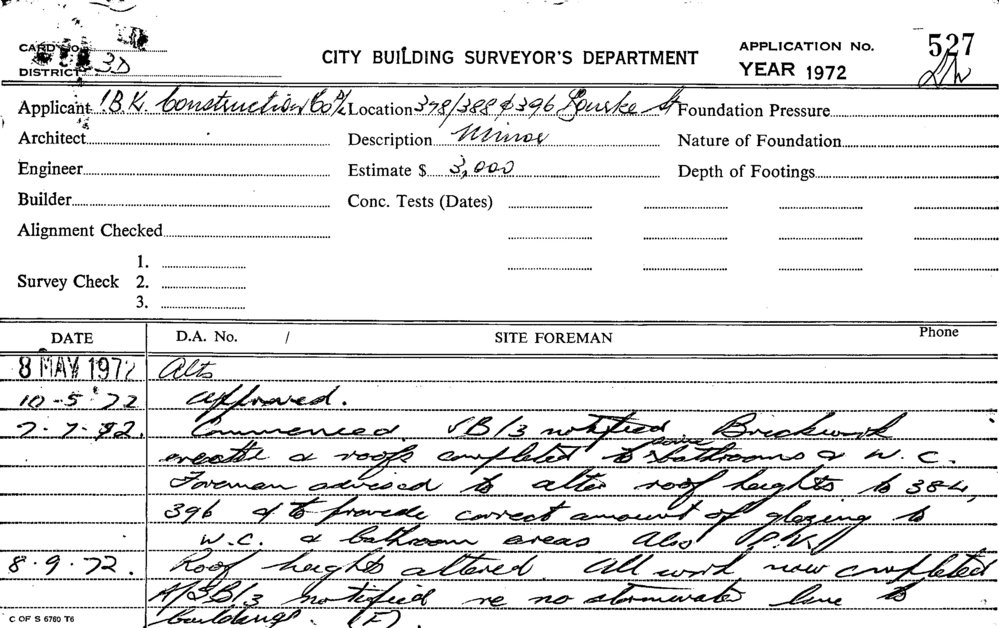 CARD No.
DISTRICT 3D
CITY BUILDING SURVEYOR'S DEPARTMENT
APPLICATION No. 527
YEAR 1972
Applicant I.B.K. Construction Co P/L Location 378/388 & 396 Bourke St Foundation Pressure
Architect Description Minor Nature of Foundation
Engineer Estimate $ 3,000 Depth of Footings
Builder Conc. Tests (Dates)
Alignment Checked
1.
Survey Check 2.
3.
DATE D.A. No. / SITE FOREMAN Phone
8 MAY 1972 Alts
10-5-72 approved.
7-7-72. Commenced. SB/3 notified. Brickwork
& roofs completed to some bathrooms & W.C.
Foreman advised to alter roof heights to 384,
396 & to provide correct amount of glazing to
W.C. & bathroom areas also P.V.
8.9.72. Roof heights altered. All work now completed
SB/3 notified re no stormwater line to
buildings. (F).
C OF S 6760 T6